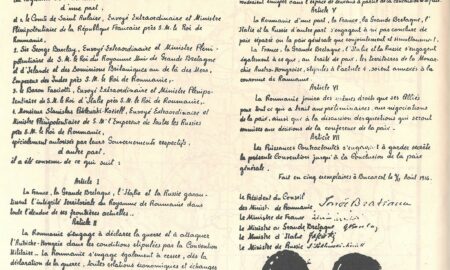 d'une part,
et
le Comte de Saint Aulaire, Envoyé Extraordinaire et Ministre
Plénipotentiaire de la République Française près S.M. le Roi de
Roumanie,
Sir George Barclay, Envoyé Extraordinaire et Ministre Pléni-
potentiaire de S.M. le Roi du Royaume Uni de Grande Bretagne
et d'Irlande et des Dominions Britanniques au de là des Mers,
Empereur des Indes près S.M. le Roi de Roumanie,
le Baron Fasciotti, Envoyé Extraordinaire et Ministre Plénipo-
tentiaire de S.M. le Roi d'Italie près S.M. le Roi de Roumanie,
Monsieur Stanislas Poklewski Koziell, Envoyé Extraordinaire et
Ministre Plénipotentiaire de S.M. l'Empereur de toutes les Russies
près S.M. le Roi de Roumanie,
spécialement autorisés par leurs Gouvernements respectifs,
d'autre part,
il a été convenu de ce qui suit :
Article I
La France, la Grande Bretagne, l'Italie et la Russie garan-
tissent l'intégrité territoriale du Royaume de Roumanie dans
toute l'étendue de ses frontières actuelles.
Article II
La Roumanie s'engage à déclarer la guerre et à attaquer
l'Autriche-Hongrie dans les conditions stipulées par la Convention
Militaire. La Roumanie s'engage également à cesser, dès la
déclaration de la guerre, toutes relations économiques et échanges
Article V
La Roumanie d'une part, la France, la Grande Bretagne, l'
Italie et la Russie d'autre part s'engagent à ne pas conclure de
paix séparée ou la paix générale que conjointement et simultanément.
La France, la Grande Bretagne, l'Italie et la Russie s'engagent
également à ce que, au traité de paix, les territoires de la Monar-
chie Austro-Hongroise, stipulés à l'article 4, soient annexés à la
couronne de Roumanie.
Article VI
La Roumanie jouira des mêmes droits que ses Alliés
pour tout ce qui a trait aux préliminaires, aux négociations
de la paix, ainsi qu'à la discussion des questions qui seront
soumises aux décisions de la conférence de la paix.
Article VII
Les Puissances Contractantes s'engagent à garder secrète
la présente Convention jusqu'à la Conclusion de la paix
générale.
Fait en cinq exemplaires à Bucarest le 4/17 Août 1916.
Le Président du Conseil
des Ministres de Roumanie
Le Ministre de France
Le Ministre de Grande Bretagne
Le Ministre d'Italie
Le Ministre de Russie